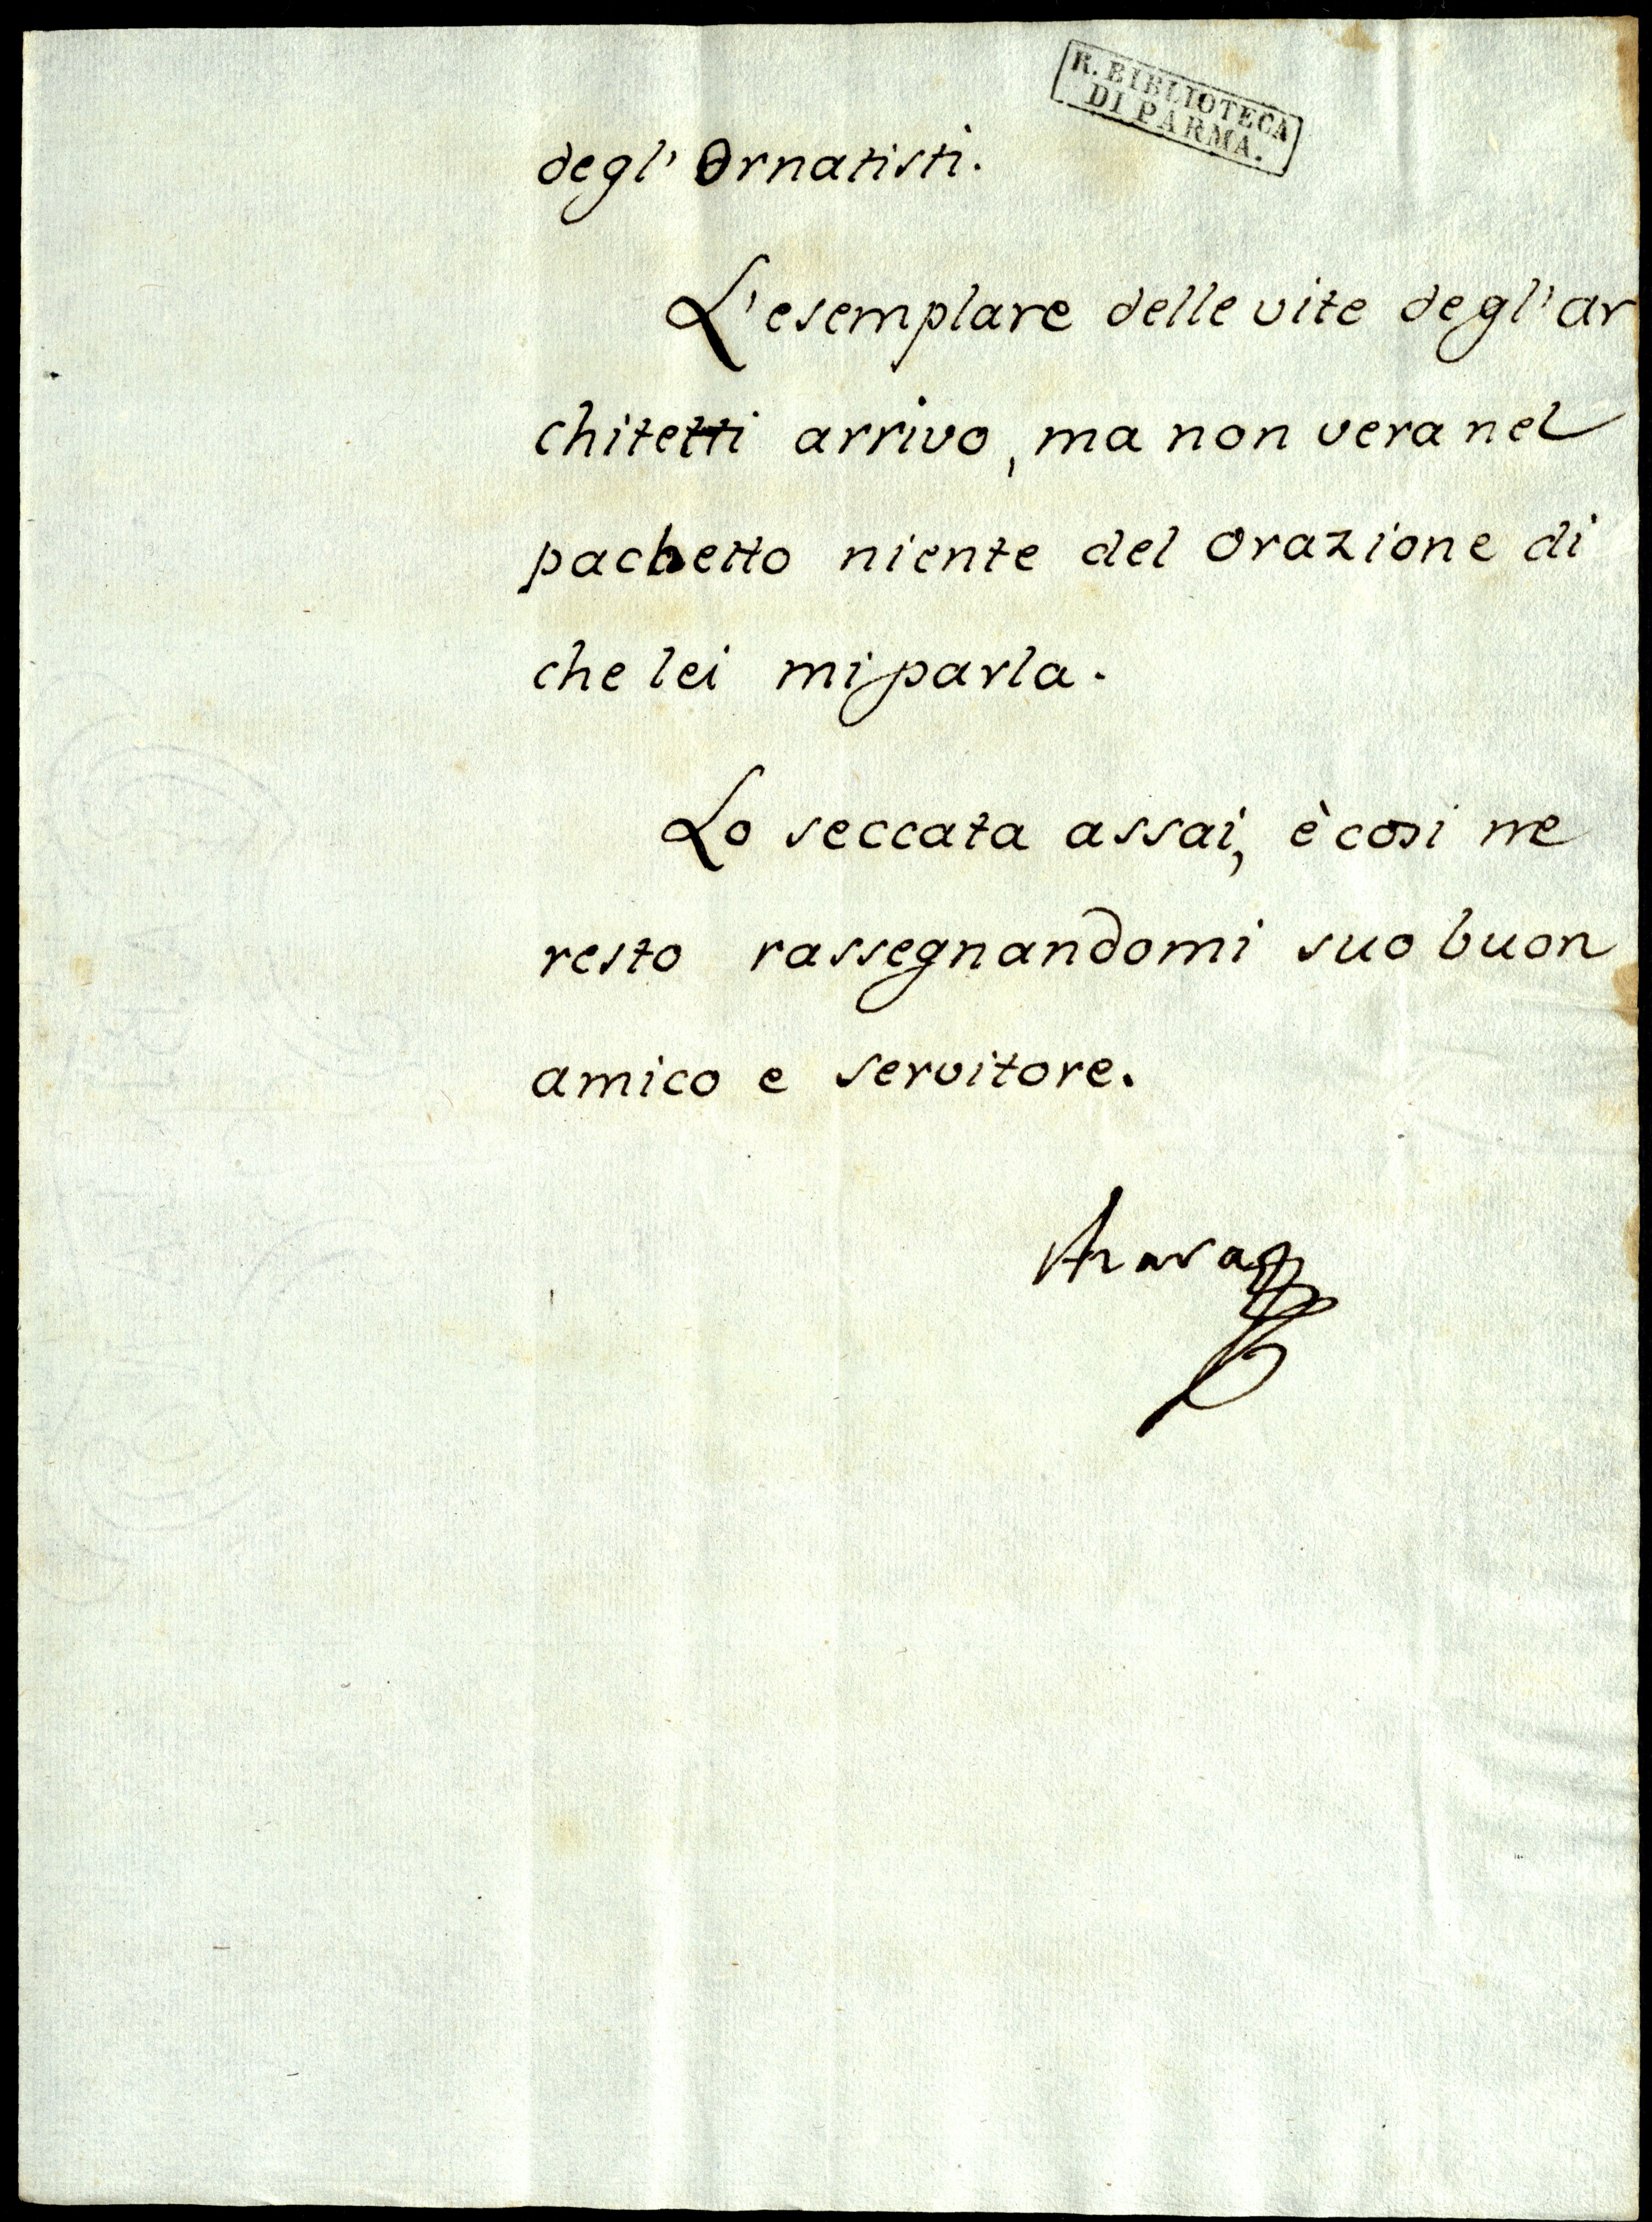 R. BIBLIOTECA
DI PARMA.
degl' Ornatisti.
L'esemplare delle vite degl' ar
chitetti arrivo, ma non vera nel
pachetto niente del Orazione di
che lei mi parla.
Lo seccata assai, è cosi me
resto rassegnandomi suo buon
amico e servitore.